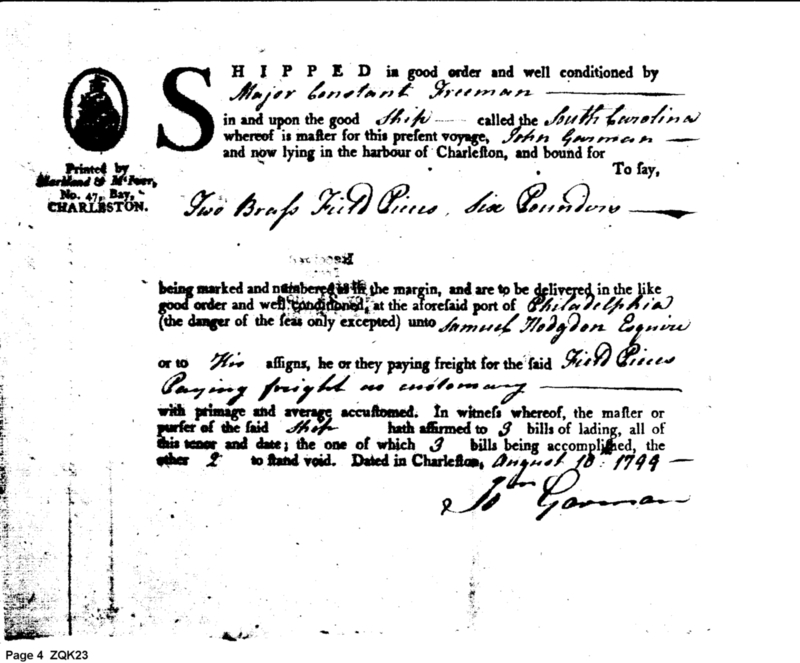 SHIPPED in good order and well conditioned by
Major Constant Freeman
in and upon the good Ship called the South Carolina
whereof is maſter for this preſent voyage, John Garman
and now lying in the harbour of Charleſton, and bound for
To ſay,
Printed by
Markland & M'Iver,
No. 47, Bay,
CHARLESTON.
Two Braſs Field Pieces, Six Pounders
being marked and numbered as in the margin, and are to be delivered in the like
good order and well conditioned, at the aforeſaid port of Philadelphia
(the danger of the ſeas only excepted) unto Samuel Hodgdon Esquire
or to His aſſigns, he or they paying freight for the ſaid Field Pieces
Paying freight as customary
with primage and average accuſtomed. In witneſs whereof, the maſter or
purſer of the ſaid Ship hath affirmed to 3 bills of lading, all of
this tenor and date; the one of which 3 bills being accompliſhed, the
other 2 to ſtand void. Dated in Charleſton, August 18th 1799
Jn Garman
Page 4 ZQK23